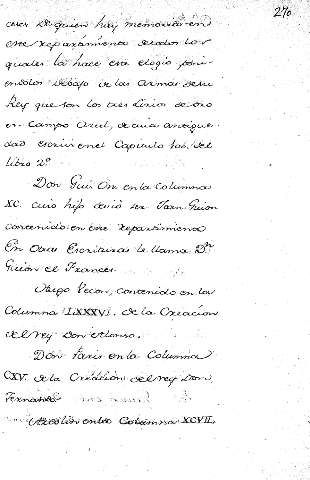 270
cores de quien hay memoria en
este repartimiento de todos los
quales la hace este elogio poni-
endolos debajo de las Armas de su
Rey que son los tres Lirios de oro
en Campo Azul, de cuia antigue-
dad escrivi en el Capitulo 102. del
libro 2º
Don Guis On en la Columna
XC. cuio hijo devió ser Juan Guion
contenido en este repartimiento
En otras Escrituras le llama Dn
Guion el Frances.
Hugo Pecon, contenido en la
Columna LXXXVI. de la Creacion
del rey Don Alonso.
Don Paris en la Columna
CXV. de la Creacion del rey Don
Fernando
en la Columna XCVII.